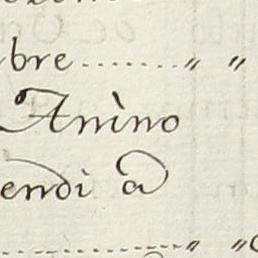 bre ........ " "
Anìno
endi a
........ " "